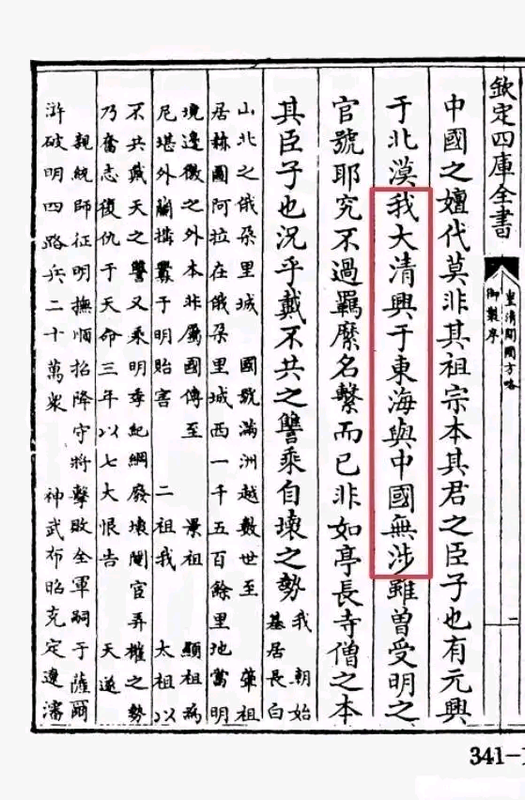 欽定四庫全書
皇清開國方略
御製序
中國之嬗代莫非其祖宗本其君之臣子也有元興
于北漠我大清興于東海與中國無涉雖曽受明之
官號耶究不過羈縻名繫而已非如亭長寺僧之本
其臣子也況乎戴不共之讐乘自壊之勢
我朝始
基居長白
山北之俄朶里城 國號滿洲越數世至 肇祖
居赫圖阿拉在俄朶里城西一千五百餘里地當明
境邊徼之外本非屬國傳至 景祖 顯祖為
尼堪外蘭搆釁于明貽害 二祖我 太祖以
不共戴天之讐又乘明季紀綱廢壊閹官弄權之勢
乃奮志復仇于天命三年以七大恨告 天遂
親統師征明撫順招降守將擊敗全軍嗣于薩爾
滸破明四路兵二十萬衆 神武布昭克定遼瀋
341-